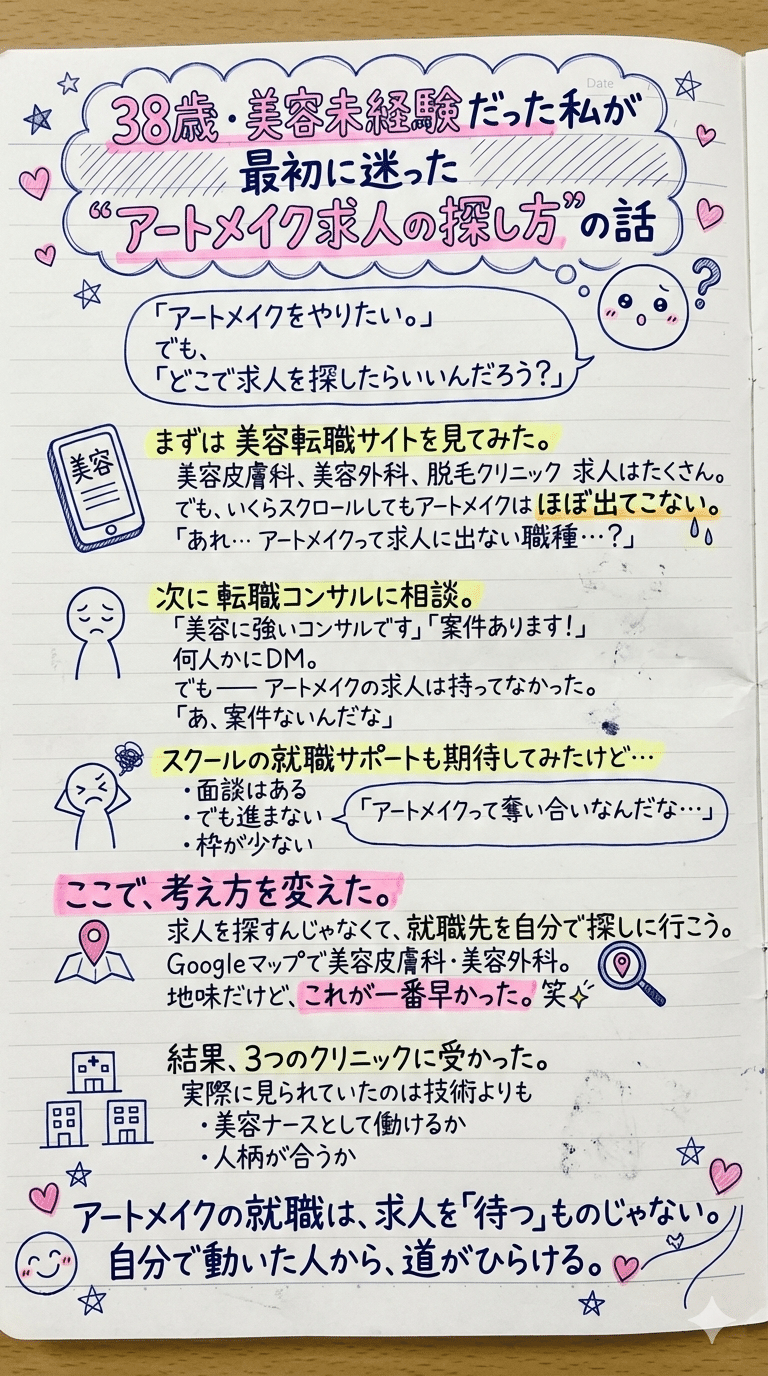 Date
38歳・美容未経験だった私が
最初に迷った
“アートメイク求人の探し方”の話
?
「アートメイクをやりたい。」
でも、
「どこで求人を探したらいいんだろう?」
まずは 美容転職サイトを見てみた。
美容
美容皮膚科、美容外科、脱毛クリニック 求人はたくさん。
でも、いくらスクロールしてもアートメイクは ほぼ出てこない。
「あれ… アートメイクって求人に出ない職種…?」
次に 転職コンサルに相談。
「美容に強いコンサルです」「案件あります!」
何人かにDM。
でも── アートメイクの求人は持ってなかった。
「あ、案件ないんだな」
スクールの就職サポートも期待してみたけど…
・面談はある
・でも進まない
「アートメイクって奪い合いなんだな…」
・枠が少ない
ここで、考え方を変えた。
求人を探すんじゃなくて、就職先を自分で探しに行こう。
Googleマップで美容皮膚科・美容外科。
地味だけど、これが一番早かった。笑
結果、3つのクリニックに受かった。
実際に見られていたのは技術よりも
・美容ナースとして働けるか
・人柄が合うか
アートメイクの就職は、求人を「待つ」ものじゃない。
自分で動いた人から、道がひらける。